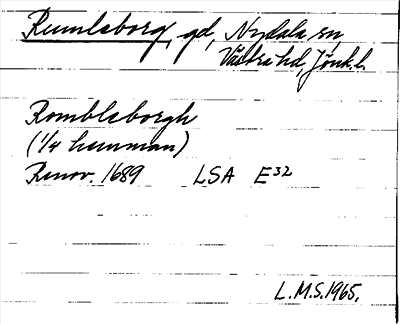 Rumlaborg, gd, Nydala sn,
Västra hd, Jönk.l.
Rombleborgh
(1/4 hemman)
Renov. 1689 LSA E32
L.M.S. 1965.